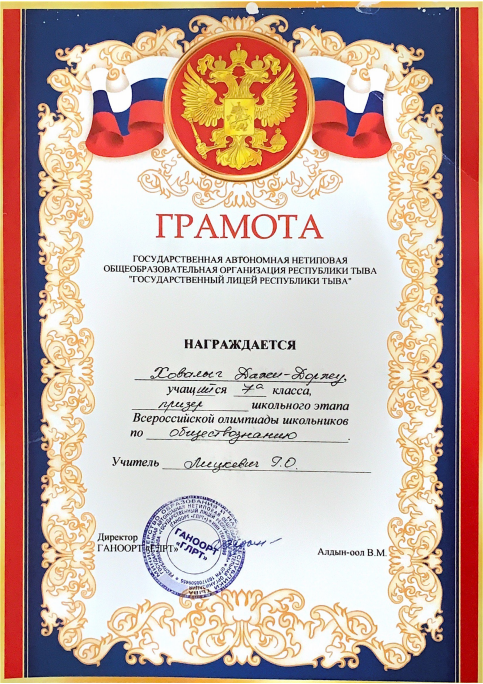 ГРАМОТА
ГОСУДАРСТВЕННАЯ АВТОНОМНАЯ НЕТИПОВАЯ
ОБЩЕОБРАЗОВАТЕЛЬНАЯ ОРГАНИЗАЦИЯ РЕСПУБЛИКИ ТЫВА
"ГОСУДАРСТВЕННЫЙ ЛИЦЕЙ РЕСПУБЛИКИ ТЫВА"
НАГРАЖДАЕТСЯ
Ховалыг Дажи-Доржу,
учащийся 7а класса,
призер школьного этапа
Всероссийской олимпиады школьников
по обществознанию.
Учитель Мицкевич Г.О.
Директор
ГАНООРТ «ГЛРТ»
ГАНООРТ
"ГЛРТ"
Алдын-оол В.М.